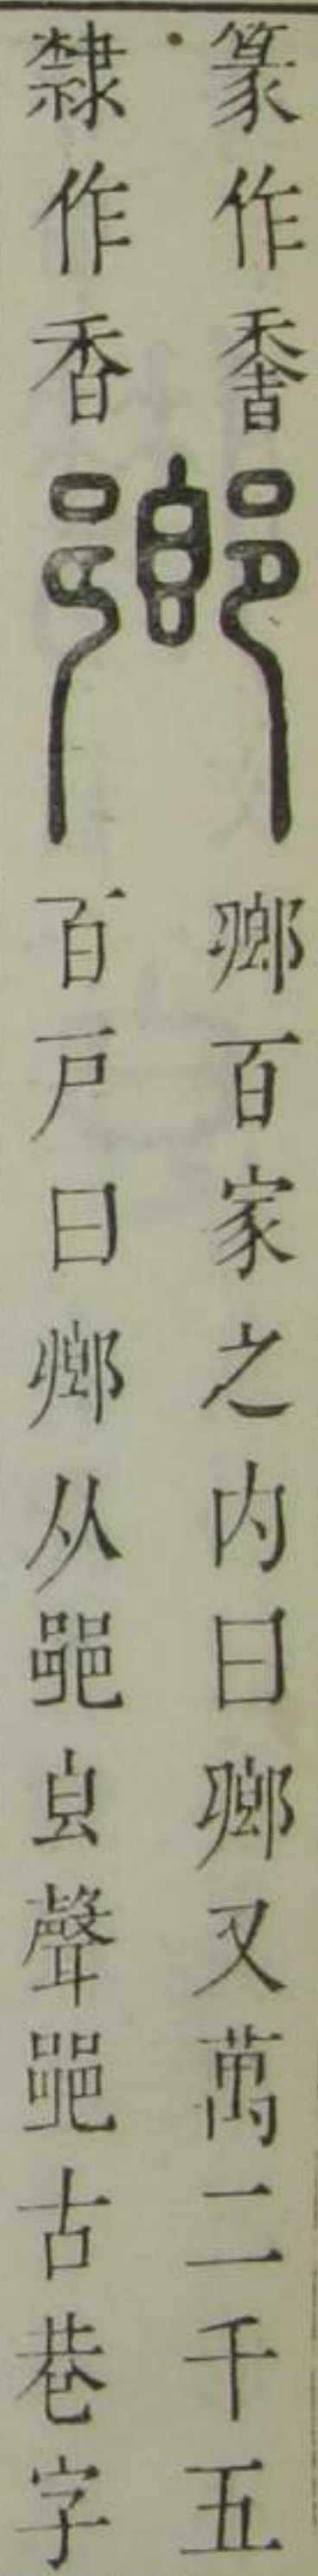 篆作
隸作香
鄉
鄉百家之内曰鄉又萬二千五
百戸曰鄉从𨛜皀聲𨛜古巷字